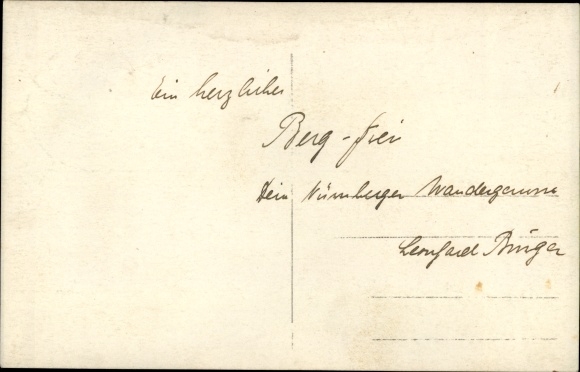 Ein herzliches
Berg-frei
Dein Nürnberger Wandergenosse
Leonhard